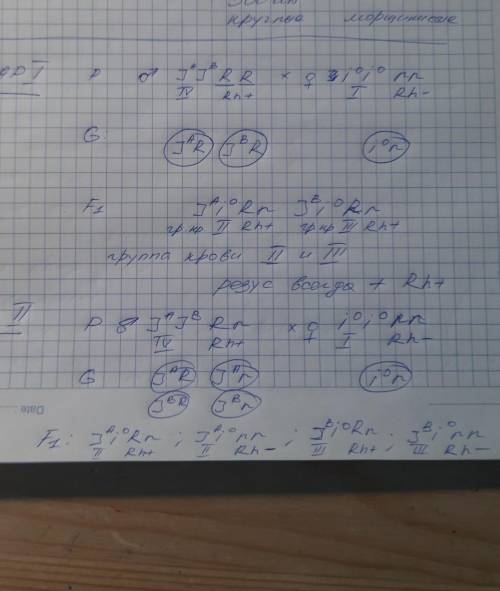 круглые морщинистые
I P ♂ J^A J^B R R × ♀ i^O i^O rr
IV Rh+ I Rh-
G: J^A R J^B R i^O r
F₁ J^A i^O Rr J^B i^O Rr
гр.кр II Rh+ гр.кр III Rh+
группа крови II и III
резус всегда + Rh+
II P ♂ J^A J^B Rr × ♀ i^O i^O rr
IV Rh+ I Rh-
G J^A R J^A r i^O r
J^B R J^B r
Date:
F₁: J^A i^O Rr ; J^A i^O rr ; J^B i^O Rr ; J^B i^O rr
II Rh+ II Rh- III Rh+ III Rh-